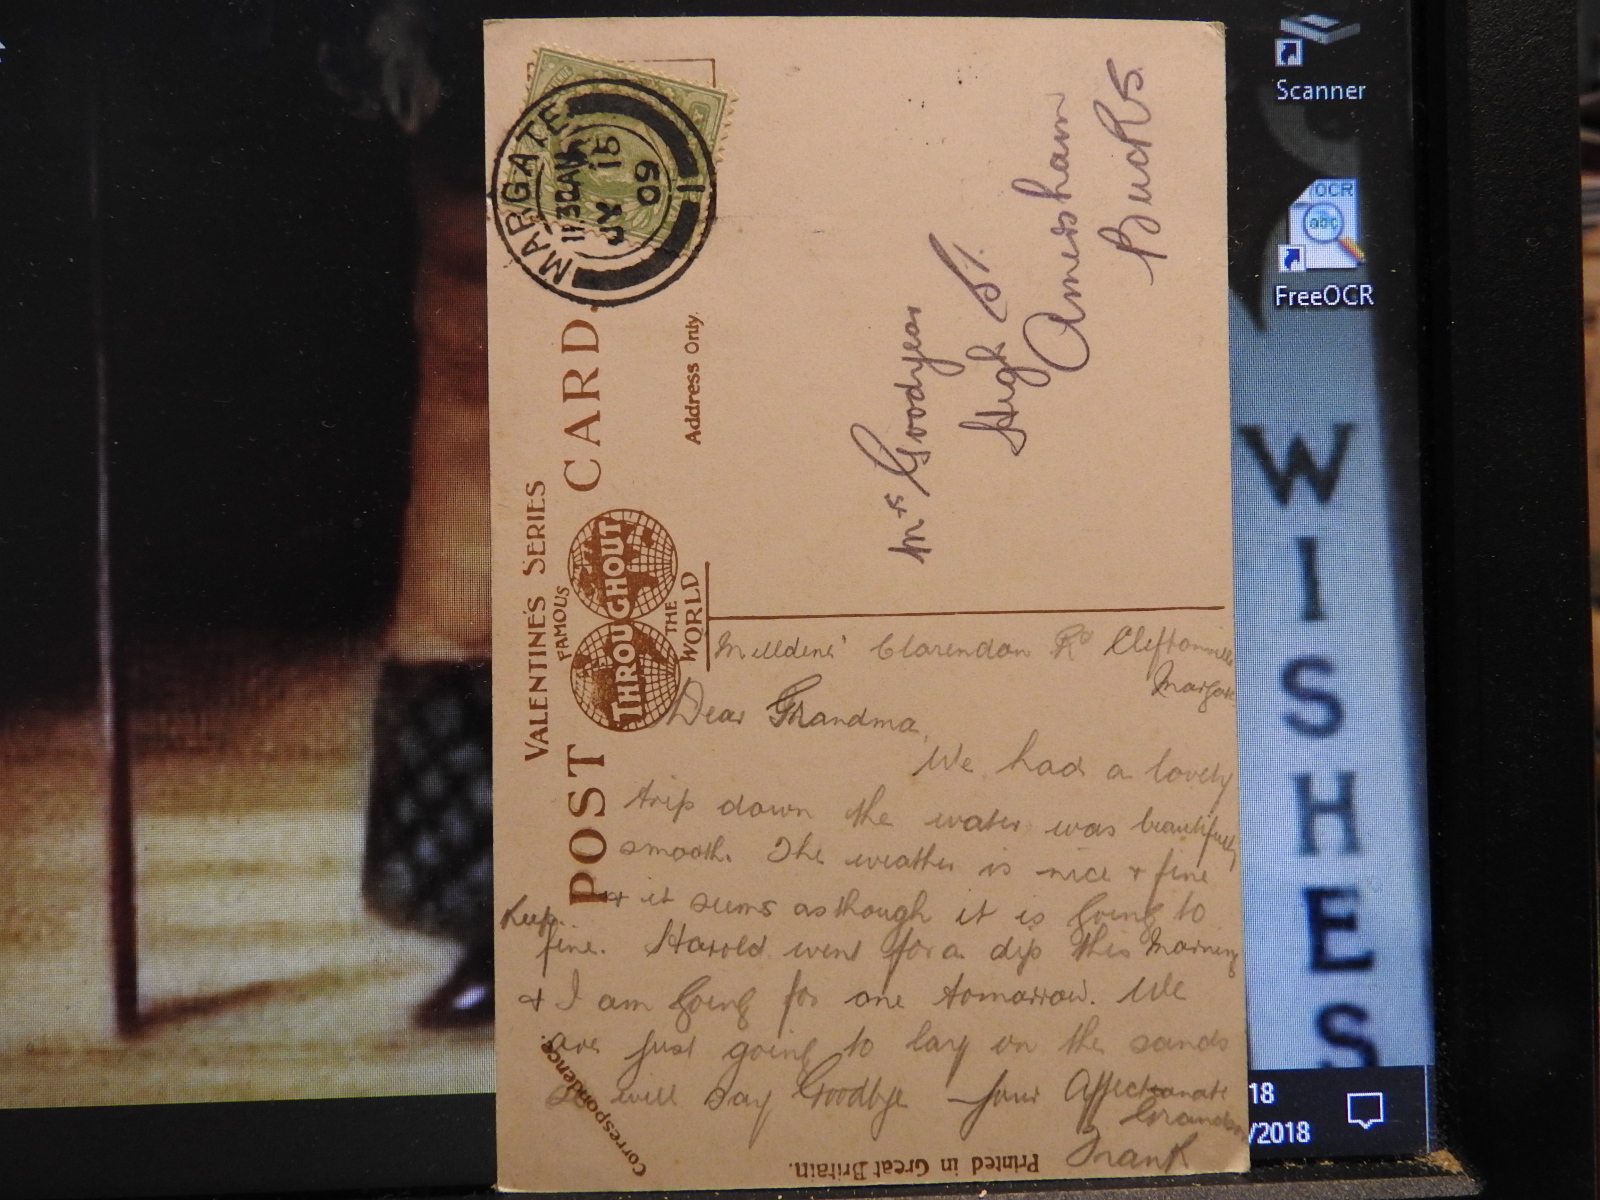 VALENTINE'S SERIES
FAMOUS
THROUGHOUT
THE
WORLD
POST CARD.
Address Only.
MARGATE
11.30AM
JY 15
09
Mrs Goodyear
High St.
Amersham
Bucks.
Clarendon Rd Cliftonville
Margate
Dear Grandma,
We had a lovely
trip down the water was beautifully
smooth. The weather is nice & fine
& it seems as though it is going to
keep
fine. Harold went for a dip this morning
& I am going for one tomorrow. We
are just going to lay on the sands
so will say Goodbye your Affectionate
Grandson
Frank
Correspondence.
Printed in Great Britain.
Scanner
OCR
abc
FreeOCR
WISHES
18
/2018